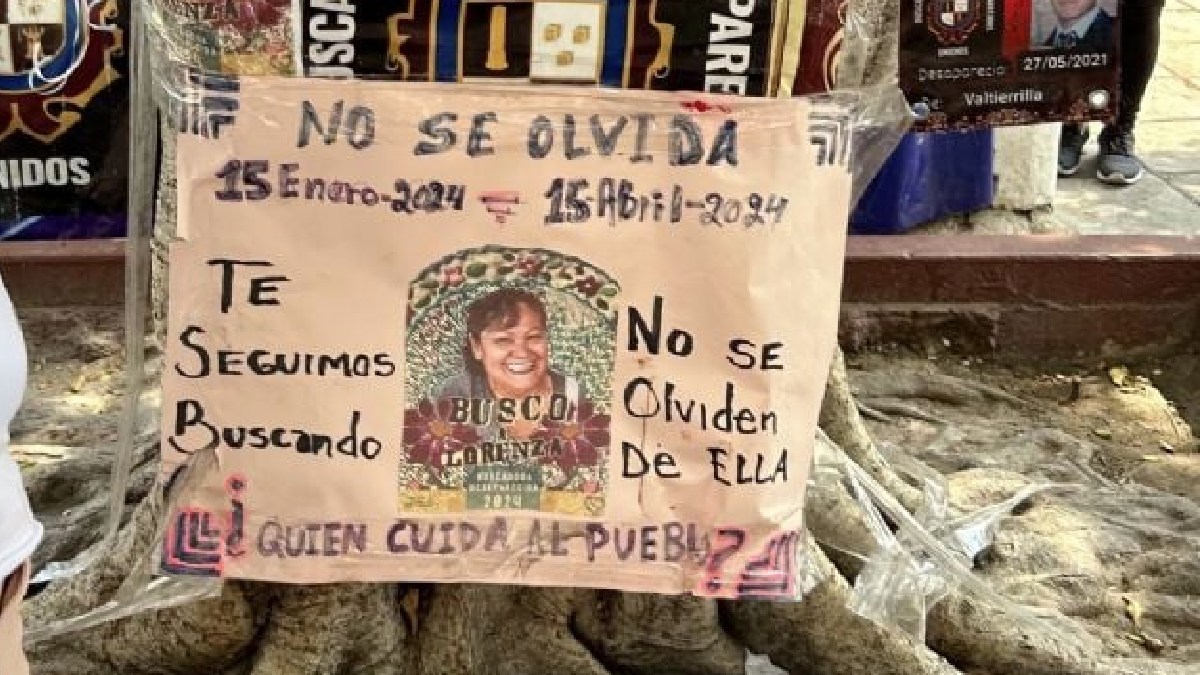 RENZA
BUSCA
PARE
UNIDOS
Desaparecio: 27/05/2021
De: Valtierrilla
NIDOS
NO SE OLVIDA
15 Enero-2024 = 15-Abril-2024
TE
SEGUIMOS
BUSCANDO
BUSCO
LORENZA
BUSCADORA
2024
No SE
Olviden
De ELLA
¿QUIEN CUIDA AL PUEBLO?